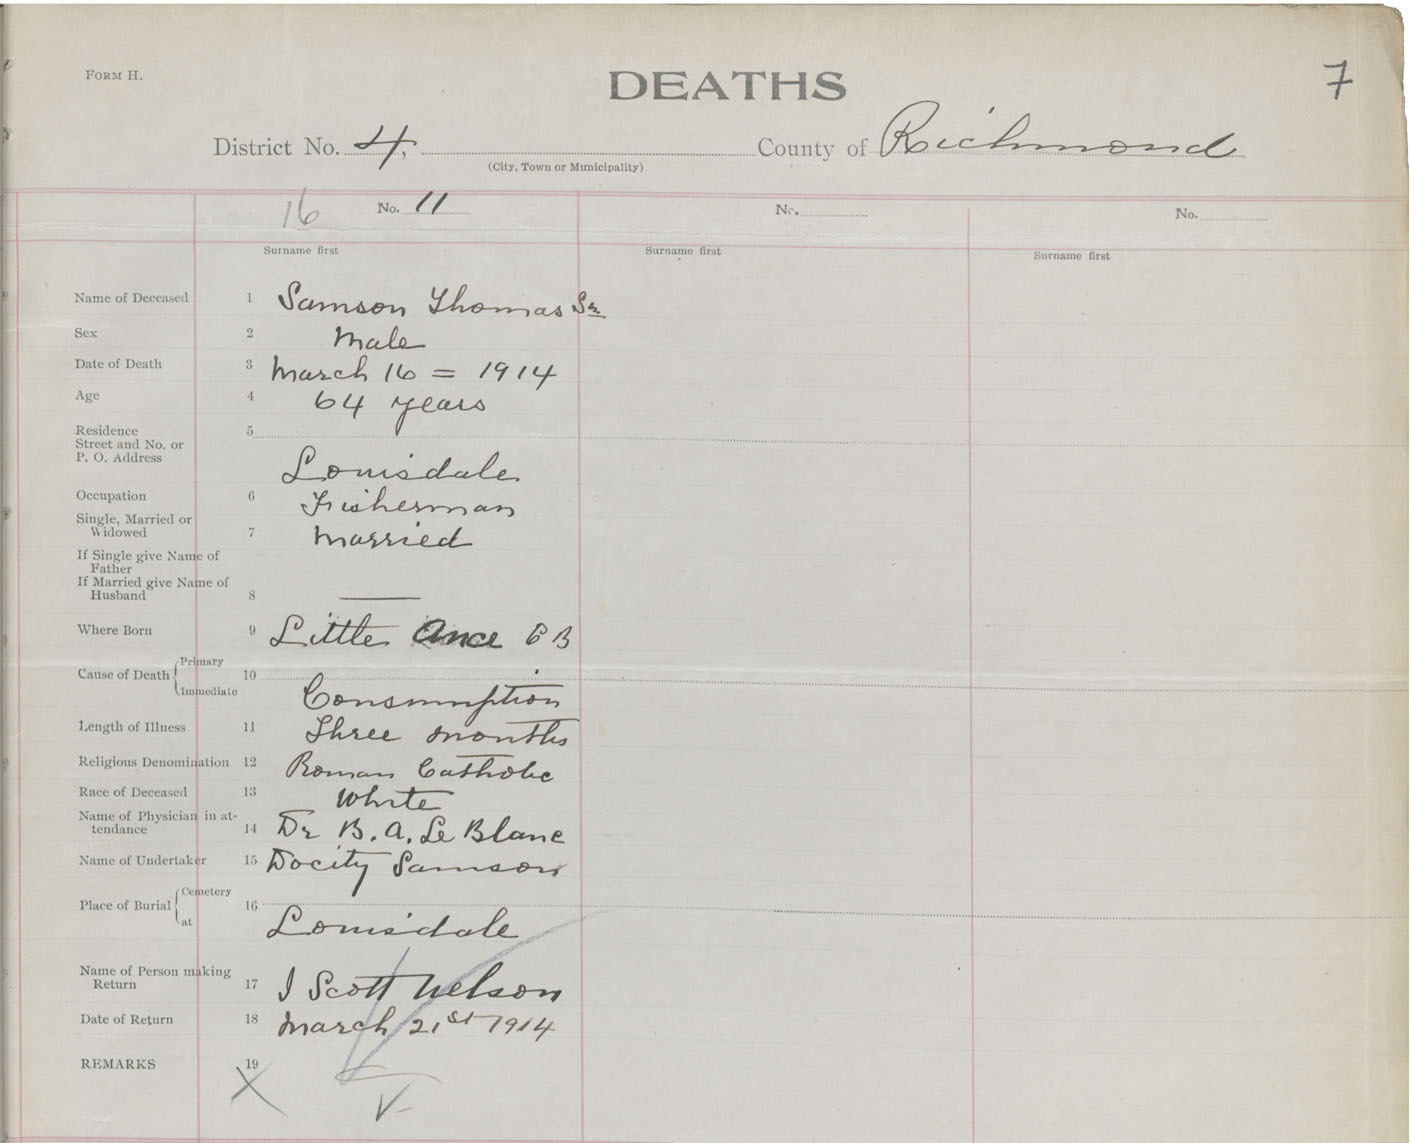 Form H.
DEATHS
7
District No. 4, County of Richmond
(City, Town or Municipality)
16 No. 11 No. No.
Surname first Surname first Surname first
Name of Deceased 1 Samson Thomas Sr
Sex 2 Male
Date of Death 3 March 16 = 1914
Age 4 64 years
Residence 5
Street and No. or
P. O. Address Louisdale
Occupation 6 Fisherman
Single, Married or
Widowed 7 Married
If Single give Name of
Father
If Married give Name of
Husband 8 —
Where Born 9 Little Ance C B
Cause of Death Primary 10
Immediate Consumption
Length of Illness 11 Three months
Religious Denomination 12 Roman Catholic
Race of Deceased 13 White
Name of Physician in at-
tendance 14 Dr B. A. Le Blanc
Name of Undertaker 15 Docity Samson
Place of Burial Cemetery 16
at Louisdale
Name of Person making
Return 17 I Scott Nelson
Date of Return 18 March 21st 1914
REMARKS 19